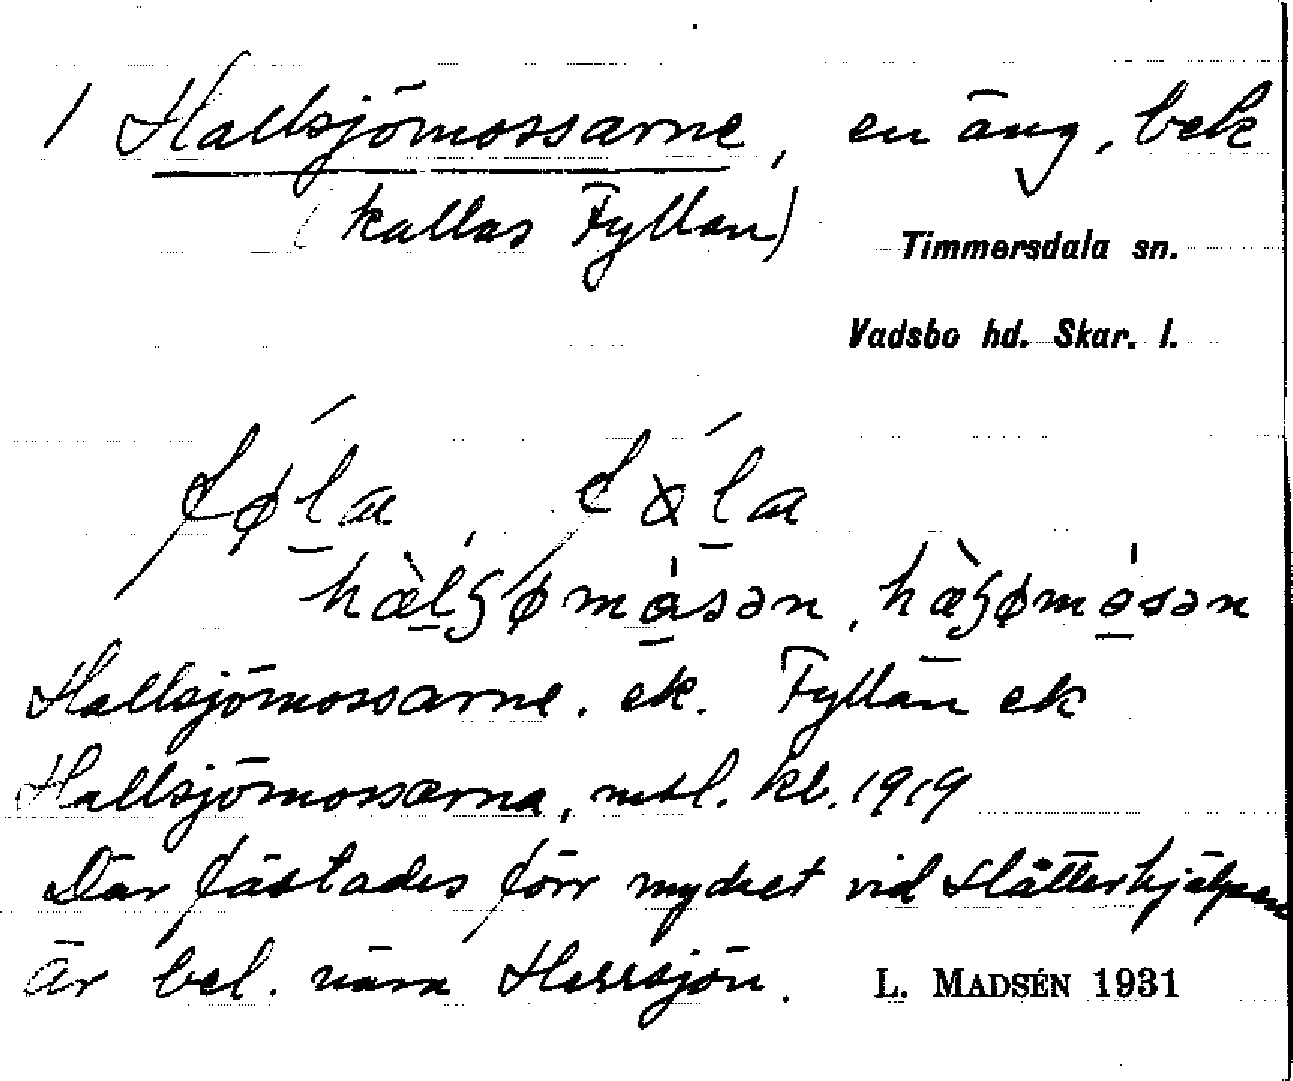 1 Hallsjömossarne, en äng, bek
(kallas Fyllan)
Timmersdala sn.
Vadsbo hd. Skar. l.
fø̀la, fɤla
hæ̀lʂømåsən, hæ̀ʂømåsən
Hallsjömossarne. ek. Fyllan ek
Hallsjömossarna, mtl. kl. 1919
Där fästades förr mycket vid slåtterhjälpen
är bel. nära Hersjön.
L. MADSÉN 1931